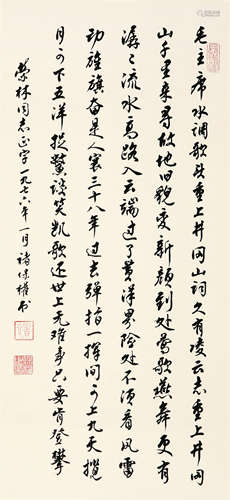 毛主席水调歌头重上井冈山词久有凌云志重上井冈
山千里来寻故地旧貌变新颜到处莺歌燕舞更有
潺潺流水高路入云端过了黄洋界险处不须看风雷
动旌旗奋是人寰三十八年过去弹指一挥间可上九天揽
月可下五洋捉鳖谈笑凯歌还世上无难事只要肯登攀
荣林同志正字一九七六年一月褚保权书